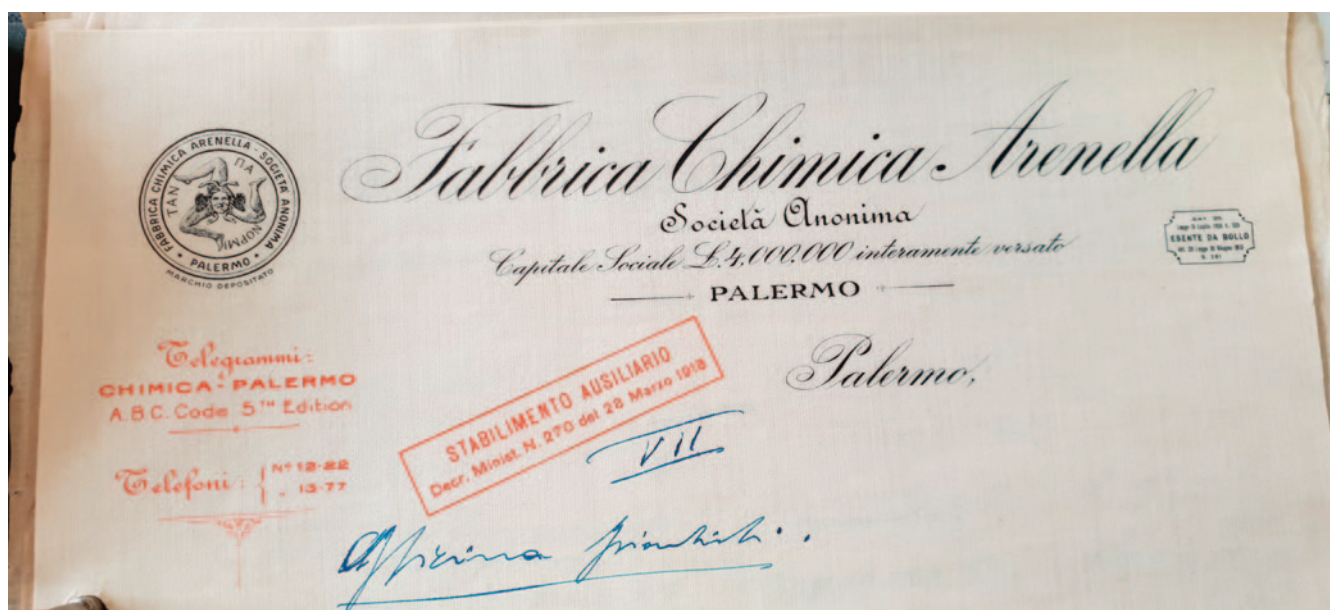 FABBRICA CHIMICA ARENELLA - SOCIETÀ ANONIMA
PALERMO
MARCHIO DEPOSITATO
Fabbrica Chimica Arenella
Società Anonima
Capitale Sociale L. 4,000,000 interamente versato
PALERMO
ESENTE DA BOLLO
Telegrammi:
CHIMICA-PALERMO
A.B.C. Code 5TH Edition
Telefoni: { Nº 12-22
„ 13-77
STABILIMENTO AUSILIARIO
Decr. Minist. N. 270 del 28 Marzo 1918
Palermo,
VII
Officina